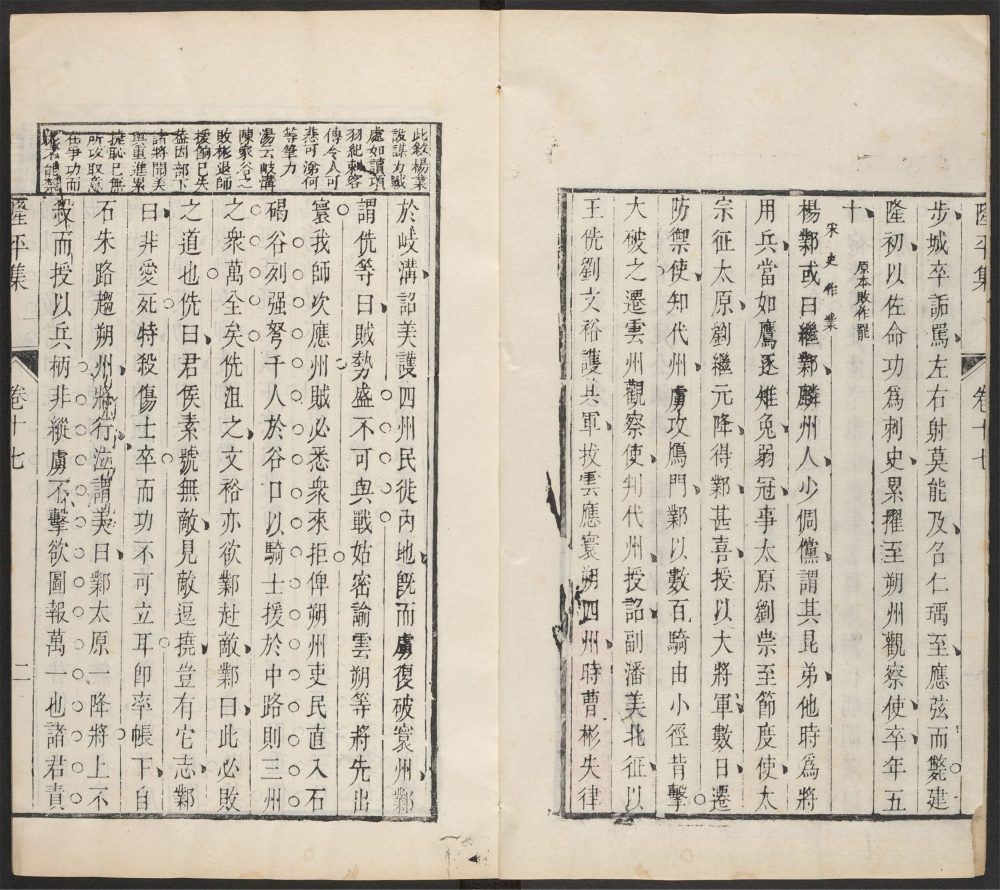 隆平集
卷十七
步城卒詬罵左右射莫能及名仁瑀至應弦而斃建
隆初以佐命功爲刺史累擢至朔州觀察使卒年五
十
原本敗作罷
宋史作業
楊鄴或曰繼鄴麟州人少倜儻謂其昆弟他時爲將
用兵當如鷹逐雉兔弱冠事太原劉崇至節度使太
宗征太原劉繼元降得鄴甚喜授以大將軍數日遷
防禦使知代州虜攻鴈門鄴以數百騎由小徑背擊
大破之遷雲州觀察使判代州授詔副潘美北征以
王侁劉文裕護其軍拔雲應寰朔四州時曹彬失律
此敘楊業
設謀力戰
處如讀項
羽紀刺客
傳令人可
悲可涕何
等筆力
湯云岐溝
陳家谷之
敗彬退師
援餉已失
葢因部下
諸將聞美
與重進累
捷恥已無
所攻取意
在爭功而
於岐溝詔美護四州民徙內地旣而虜復破寰州鄴
謂侁等曰賊勢盛不可與戰姑密諭雲朔等將先出
寰我師次應州賊必悉衆來拒俾朔州吏民直入石
碣谷列强弩千人於谷口以騎士援於中路則三州
之衆萬全矣侁沮之文裕亦欲鄴赴敵鄴曰此必敗
之道也侁曰君侯素號無敵見敵逗撓豈有它志鄴
曰非愛死特殺傷士卒而功不可立耳卽率帳下自
石朱路趨朔州將行泣謂美曰鄴太原一降將上不
殺而授以兵柄非縱虜不擊欲圖報萬一也諸君責
隆平集
卷十七
二